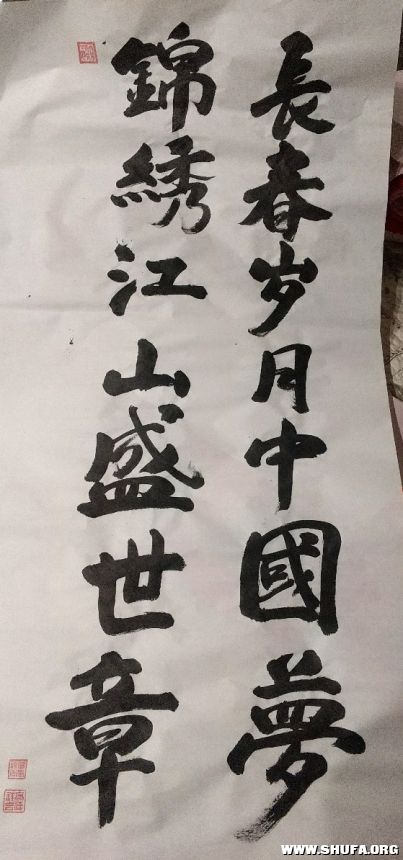 長春岁月中國夢
錦綉江山盛世章
WWW.SHUFA.ORG